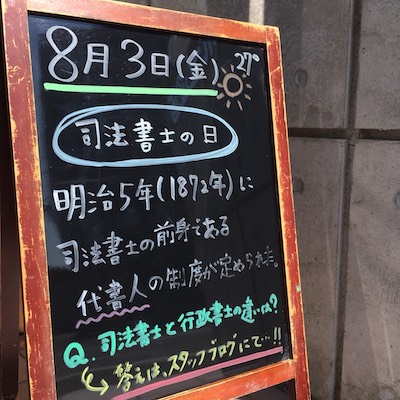 8月3日(金) 27°
司法書士の日
明治5年(1872年)に
司法書士の前身である
代書人の制度が定められた。
Q.司法書士と行政書士の違いは?
答えは、スタッフブログにて…!!